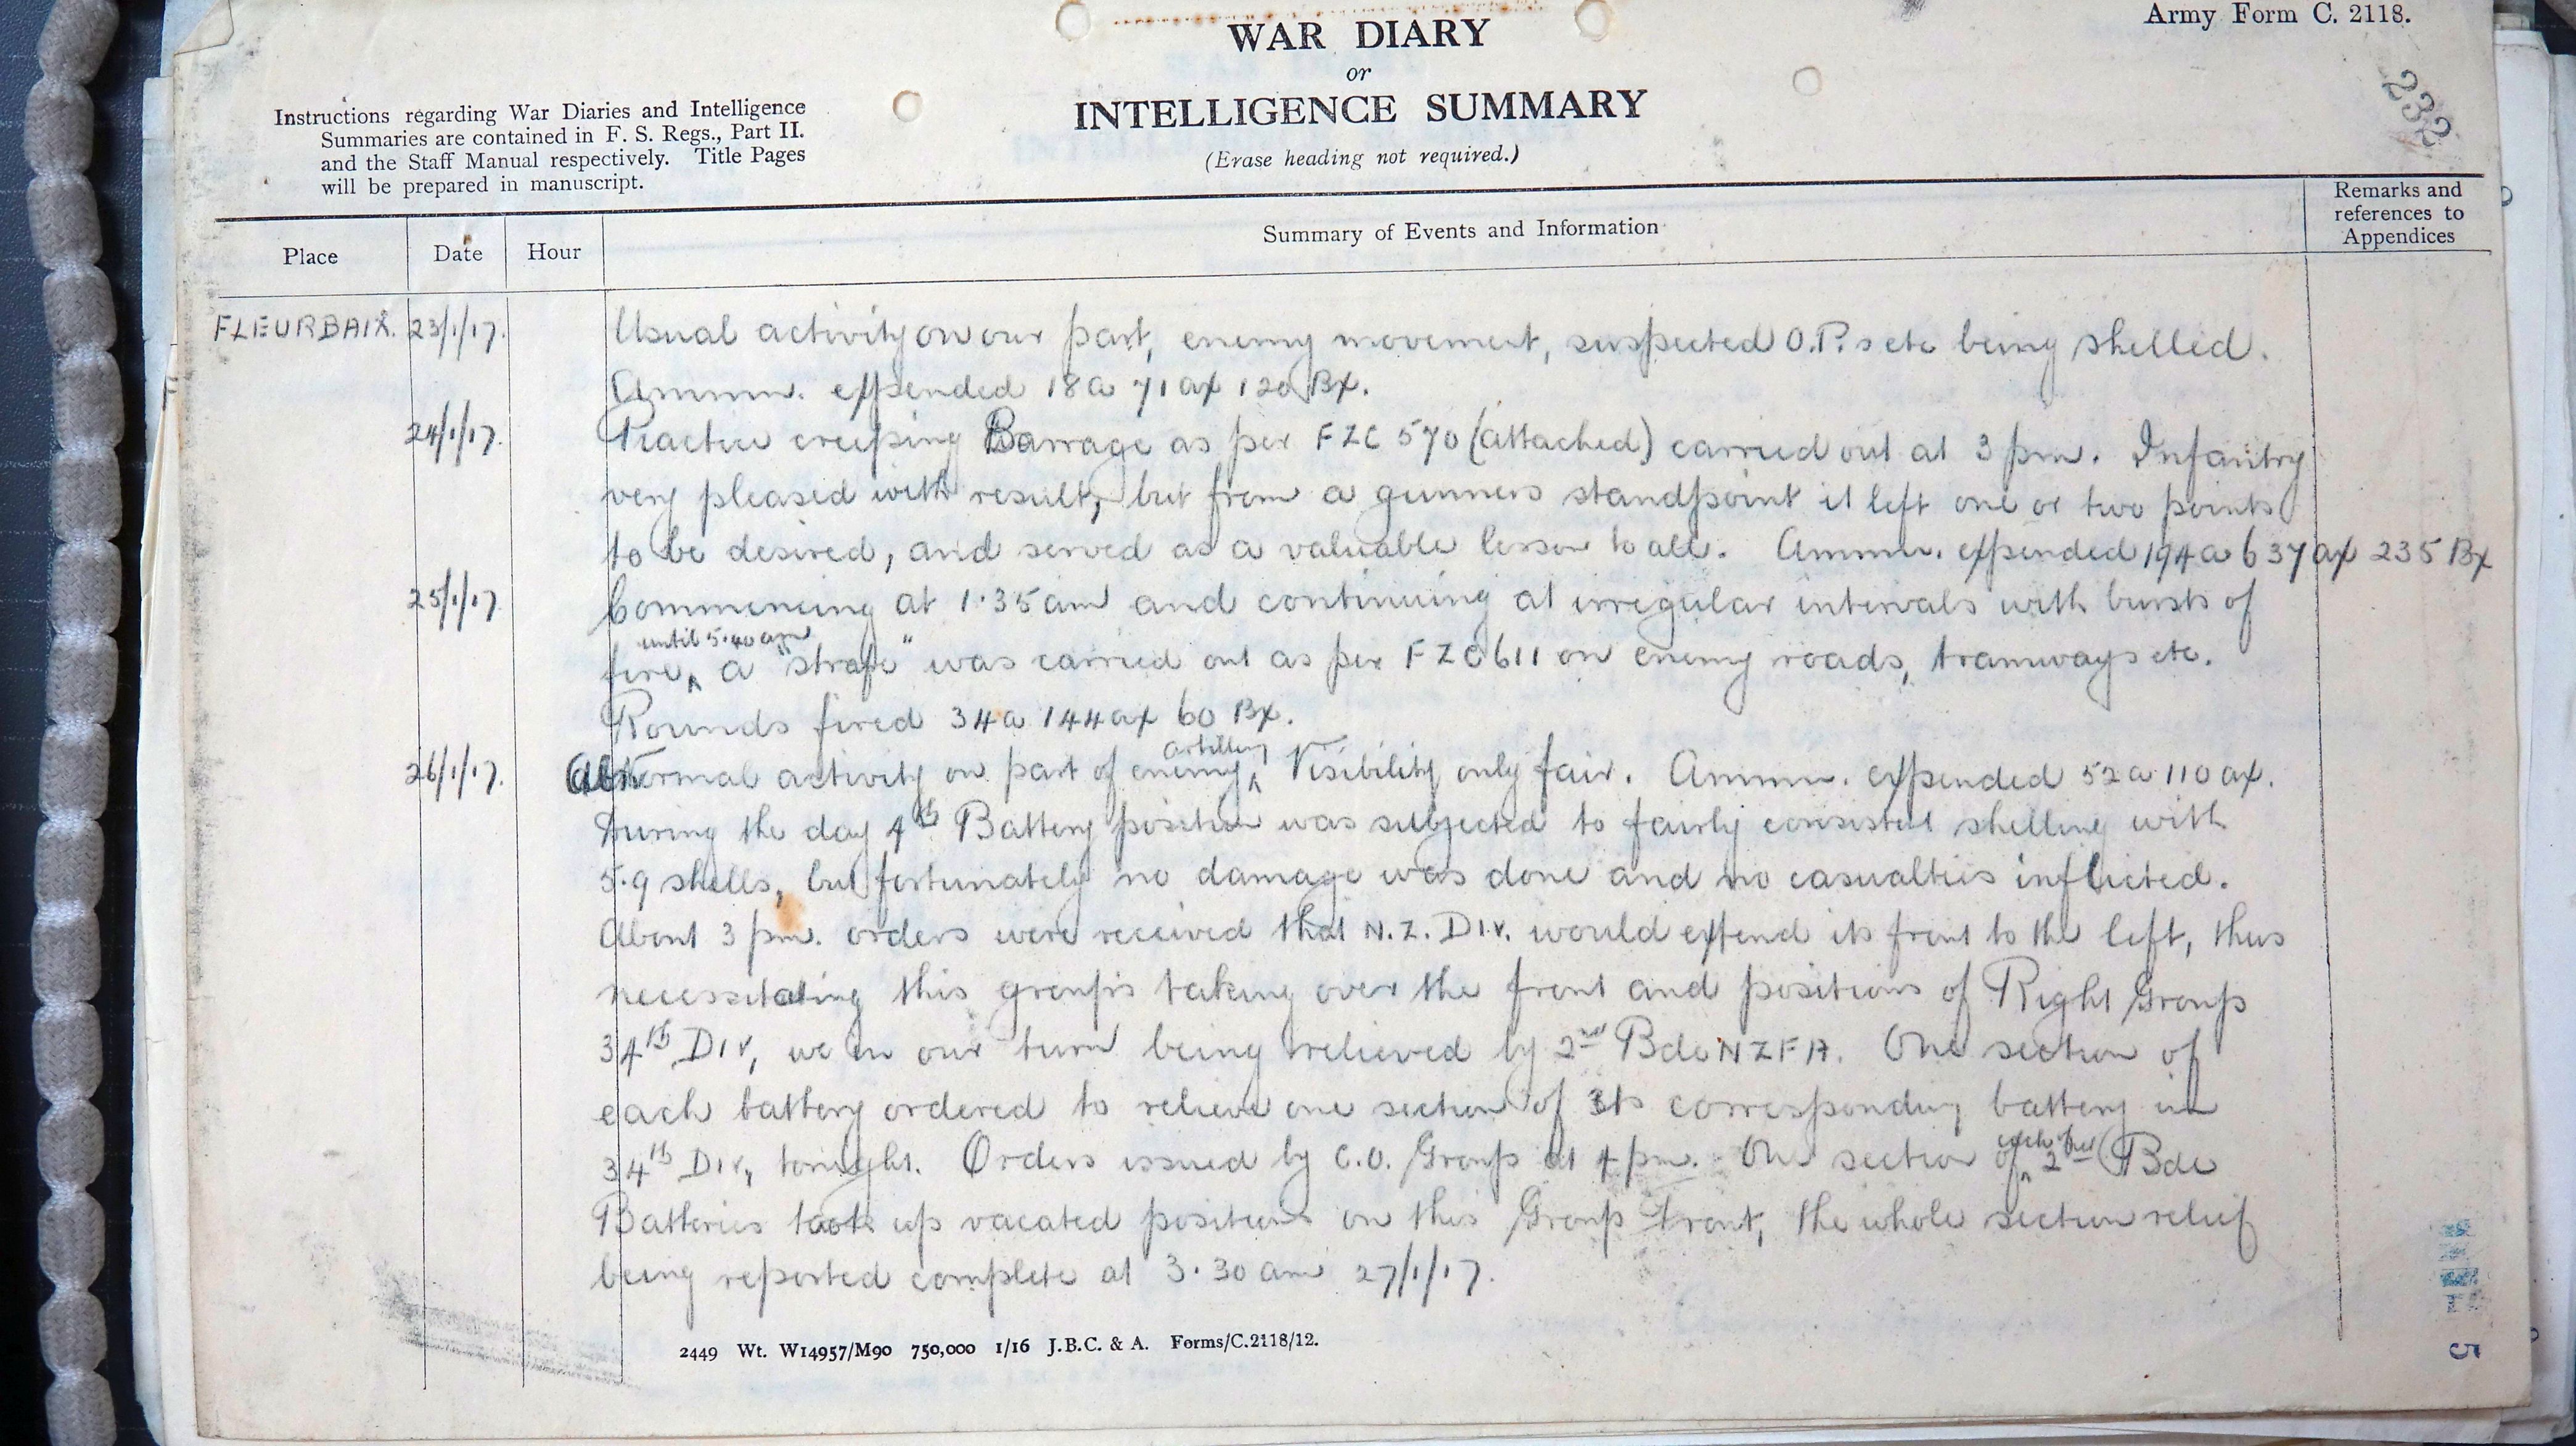 Army Form C. 2118.
WAR DIARY
or
INTELLIGENCE SUMMARY
(Erase heading not required.)
232
Instructions regarding War Diaries and Intelligence
Summaries are contained in F. S. Regs., Part II.
and the Staff Manual respectively. Title Pages
will be prepared in manuscript.
Place Date Hour Summary of Events and Information Remarks and references to Appendices
FLEURBAIX. 23/1/17. Usual activity on our part, enemy movement, suspected O.P.s etc being shelled.
Ammn. expended 18a 71ax 120 Bx.
24/1/17. Practice creeping Barrage as per FZC 570 (attached) carried out at 3 pm. Infantry
very pleased with result, but from a gunners standpoint it left one or two points
to be desired, and served as a valuable lesson to all. Ammn. expended 194a 637ax 235 Bx
25/1/17 Commencing at 1.35am and continuing at irregular intervals with bursts of
fire, until 5.40 am a "strafe" was carried out as per FZC 611 on enemy roads, tramways etc.
Rounds fired 34a 144ax 60 Bx.
26/1/17. Abnormal activity on part of enemy artillery Visibility only fair. Ammn. expended 52a 110 ax.
During the day 4th Battery position was subjected to fairly consistent shelling with
5.9 shells, but fortunately no damage was done and no casualties inflicted.
About 3 pm. orders were received that N.Z. DIV. would extend its front to the left, thus
necessitating this group's taking over the front and positions of Right Group
34th DIV, we in our turn being relieved by 2nd Bde NZFA. One section of
each battery ordered to relieve one section of its corresponding battery in
34th DIV, tonight. Orders issued by C.O. Group at 4 pm. One section of each of 2nd Bde
Batteries took up vacated positions on this Group front, the whole section relief
being reported complete at 3.30 am 27/1/17.
2449 Wt. W14957/M90 750,000 1/16 J.B.C. & A. Forms/C.2118/12.
5